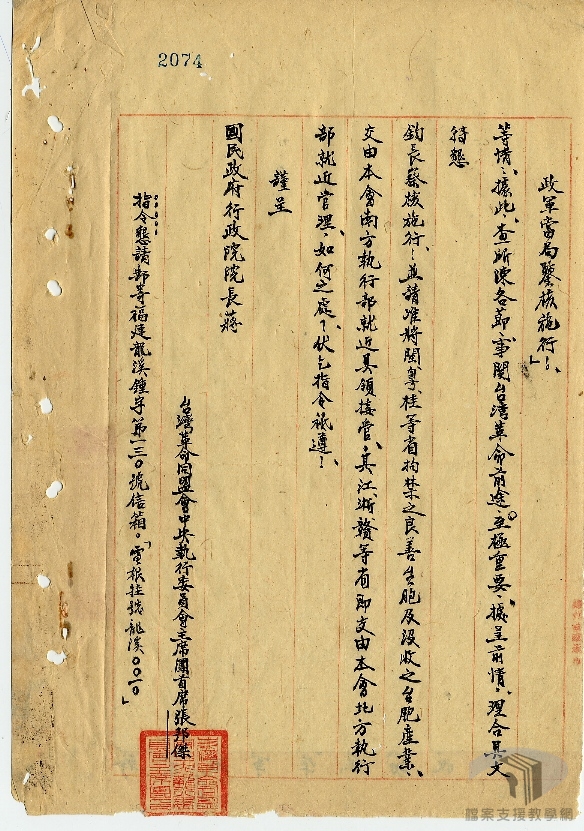 2074
政軍當局鑒核施行！」
等情、據此、查所陳各節、事關台湾革命前途。至極重要、據呈前情、理合具文
特懇
鈞長鑒核施行、！並請准將閩粵桂等省拘禁之良善台胞及沒收之台胞產業、
交由本會南方執行部就近具領接管、其江浙贛等省即交由本會北方執行
部就近管理、如何之處、伏乞指令祇遵！
謹呈
國民政府行政院院長蔣
台灣革命同盟會中央執行委員會主席團首席張邦傑
指令懇請郵寄福建龍溪鍾字第一三〇號信箱。「電報挂號龍溪〇〇一〇」
檔案支援教學網